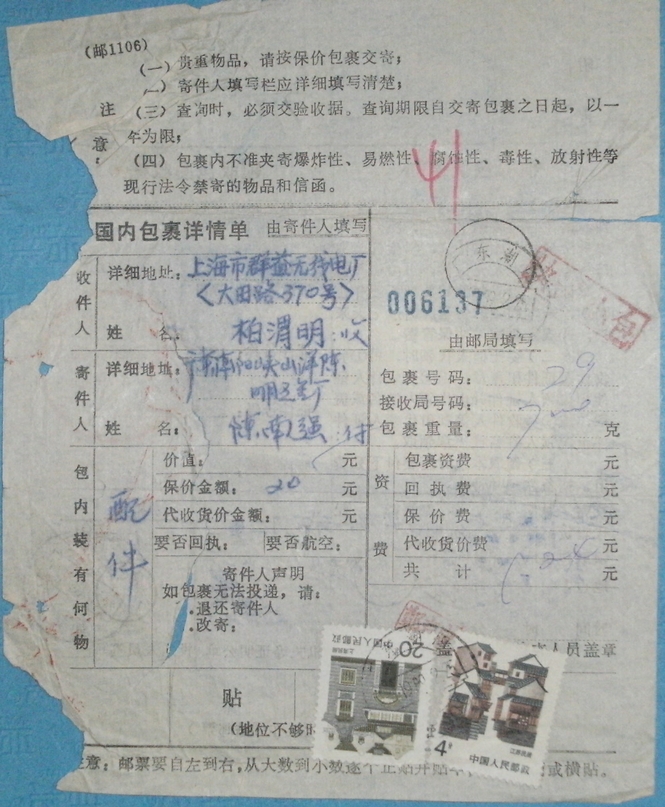 (邮1106)
(一)贵重物品，请按保价包裹交寄；
(二)寄件人填写栏应详细填写清楚；
注意：
(三)查询时，必须交验收据。查询期限自交寄包裹之日起，以一
年为限；
(四)包裹内不准夹寄爆炸性、易燃性、腐蚀性、毒性、放射性等
现行法令禁寄的物品和信函。
41
国内包裹详情单 由寄件人填写
收件人
详细地址：上海市群益无线电厂
〈大田路370号〉
姓名：柏渭明 收
寄件人
详细地址：
姓名：陈南强 付
006137
东湖
由邮局填写
包裹号码：29
接收局号码：
包裹重量： 克
包内装有何物
配件
价值： 元
保价金额：20 元
代收货价金额： 元
要否回执： 要否航空：
寄件人声明
如包裹无法投递，请：
.退还寄件人
.改寄：
资费
包裹资费 元
回执费 元
保价费 元
代收货价费 元
共计 元
盖 人员盖章
贴
(地位不够时
20 中国人民邮政
上海民居
4分
江西民居
中国人民邮政
注意：邮票要自左到右，从大数到小数逐个正贴 或横贴。